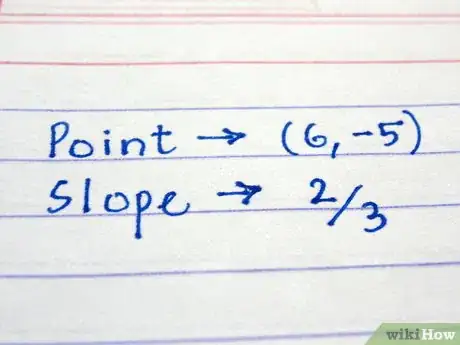 Point → (6, -5)
Slope → 2/3
wikiHow